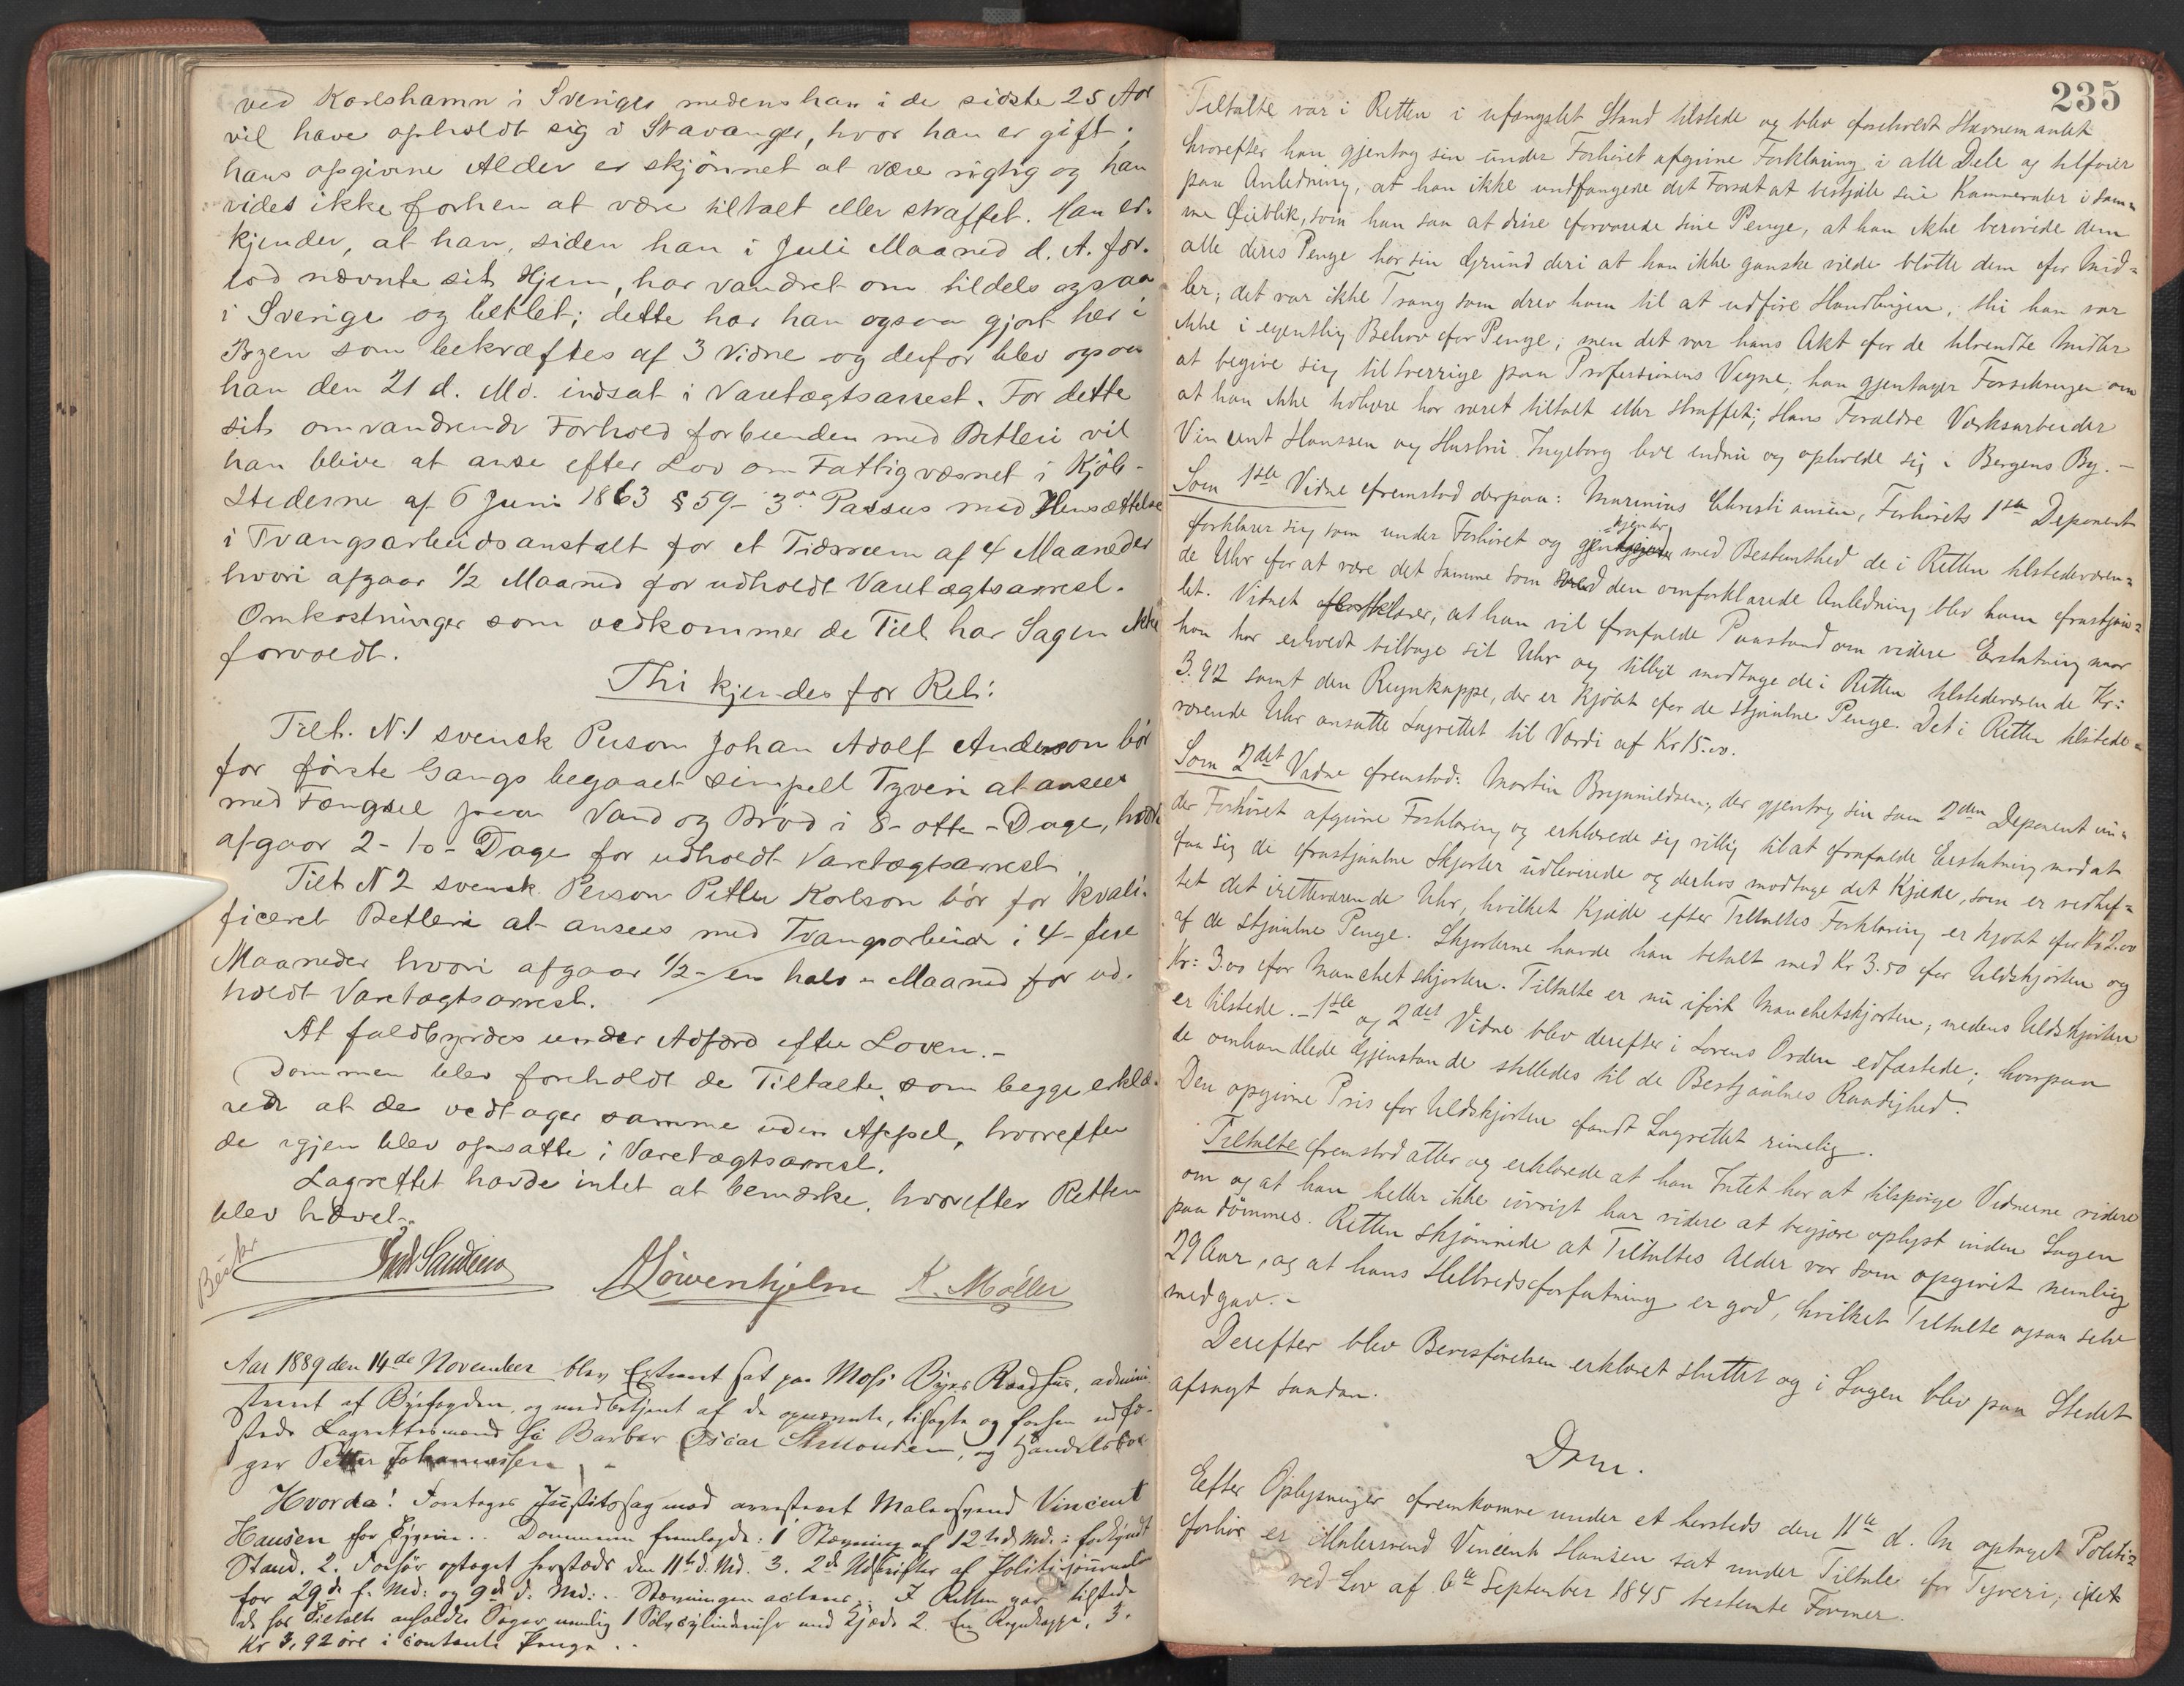 ved Karlshamn i Sverige medens han i de sidste 25 Aar
vil have opholdt sig i Stavanger, hvor han er gift;
hans opgivne Alder er skjønnet at være rigtig og han
vides ikke forhen at være tiltalt eller straffet. Han er-
kjender, at han, siden han i Juli Maaned d. A. for-
lod nævnte sit Hjem, har vandret om tildels ogsaa
i Sverige og betlet; dette har han ogsaa gjort her i
Byen som bekræftes af 3 Vidne og derfor blev ogsaa
han den 21 d. Md. indsat i Varetægtsarrest. For dette
sit omvandrende Forhold forbunden med Betleri vil
han blive at anse efter Lov om Fattigvæsnet i Kjøb-
stæderne af 6 Juni 1863 § 59 - 3die Passus med Hensættelse
i Tvangsarbeidsanstalt for et Tidsrum af 4 Maaneder
hvori afgaar 1/2 Maaned for udholdt Varetægtsarrest.
Omkostninger som vedkommer de Tilt. har Sagen ikke
forvoldt.
Thi kjendes for Ret:
Tilt. N. 1 svensk Person Johan Adolf Anderson bør
for første Gangs begaaet simpelt Tyveri at ansees
med Fængsel paa Vand og Brød i 8 - otte - Dage, hvori
afgaar 2 - to - Dage for udholdt Varetægtsarrest.
Tilt. N 2 svensk Person Petter Karlson bør for kvali-
ficeret Betleri at ansees med Tvangsarbeide i 4 - fire
Maaneder hvori afgaar 1/2 - en halv - Maaned for ud-
holdt Varetægtsarrest.
At fuldbyrdes under Adfærd efter Loven. -
Dommen blev foreholdt de Tiltalte, som begge erklæ-
rede at de vedtager samme uden Appel, hvorefter
de igjen blev opsatte i Varetægtsarrest.
Lagrettet havde intet at bemærke, hvorefter Retten
blev hævet.
Løwenhjelm K. Møller
Aar 1889 den 14de November blev Extraret sat paa Moss Byes Raadhus, admini-
streret af Byfogden, og medbetjent af de opnævnte, tilsagte og forhen edfæ-
stede Lagrettesmænd Barber Oscar Simonsen, og Handelsbor-
ger Petter Johannessen
Hvorda! Foretages Justitssag mod arresteret Malersvend Vincent
Hansen for Tyveri. Dommeren fremlagde: 1 Stævning af 12te d. Md. i forkyndt
Stand. 2. Forhør optaget herstæds den 11te d. Md. 3. 2de Udskrifter af Politijournalen
for 29de f. Md: og 9de d. Md: Stævningen I Retten var tilstede
de hos Tiltalte anholdte Sager nemlig 1 Sølvcylinderuhr med Kjæde 2. En Regnkappe, 3.
Kr 3,92 øre i contante Penge.
235
Tiltalte var i Retten i ufængslet Stand tilstede og blev foreholdt Stævnemaalet
hvorefter han gjentog sin under Forhøret afgivne Forklaring i alle Dele og tilføier
paa Anledning, at han ikke undfangede det Forsæt at bestjæle sine Kamerater i sam-
me Øieblik, som han saa at disse forvarede sine Penge, at han ikke berøvede dem
alle deres Penge har sin Grund deri at han ikke ganske vilde blotte dem for Mid-
ler; det var ikke Trang som drev ham til at udføre Handlingen, thi han var
ikke i egentlig Behov for Penge; men det var hans Akt for de tilvendte Midler
at begive sig til Sverrige paa Professionens Vegne; han gjentager Forsikringen om
at han ikke tidligere har været tiltalt eller straffet; Hans Forældre Værksarbeider
Vincent Hanssen og Hustru Ingeborg leve endnu og opholde sig i Bergens By. -
Som 1ste Vidne fremstod derpaa: Marinius Christiansen, Forhørets 1ste Deponent
forklarer sig som under Forhøret og gjenkjender med Bestemthed de i Retten tilstedeværen-
de Uhr for at være det samme som ved den omforklarede Anledning blev ham frastjaa-
let. Vidnet forklarer, at han vil frafalde Paastand om videre Erstatning naar
han har erholdt tilbage sit Uhr og tillige modtage de i Retten tilstedeværende Kr:
3.92 samt den Regnkappe, der er kjøbt for de stjaalne Penge. Det i Retten tilstede-
værende Uhr ansatte Lagrettet til Værdi af Kr 15.00.
Som 2det Vidne fremstod: Martin Brynnildsen, der gjentog sin som 2den Deponent un-
der Forhøret afgivne Forklaring og erklærede sig villig til at frafalde Erstatning mod at
faa sig de frastjaalne Skjorter udleverede og derhos modtage det Kjæde, som er vedhef-
tet det iretteværende Uhr, hvilket Kjæde efter Tiltaltes Forklaring er kjøbt for Kr 2.00
af de stjaalne Penge. Skjorterne havde han betalt med Kr 3.50 for Uldskjorten og
Kr: 3.00 for Manchetskjorten. Tiltalte er nu iført Manchetskjorten, medens Uldskjorten
er tilstede. - 1ste og 2det Vidne blev derefter i Lovens Orden edfæstede; hvorpaa
de omhandlede Gjenstande stilledes til de Bestjaalnes Raadighed.
Den opgivne Pris for Uldskjorten fandt Lagrettet rimelig.
Tiltalte fremstod atter og erklærede at han Intet har at tilspørge Vidnerne videre
om og at han heller ikke iøvrigt har videre at begjære oplyst inden Sagen
paadømmes. Retten skjønnede at Tiltaltes Alder var som opgivet nemlig
29 Aar, og at hans Helbredsforfatning er god, hvilket Tiltalte ogsaa selv
medgav. -
Derefter blev Bevisførelsen erklæret sluttet og i Sagen blev paa Stedet
afsagt saadan.
Dom.
Efter Oplysninger fremkomne under et hersteds den 11te d. M optaget Politi-
forhør er Malersvend Vincent Hansen sat under Tiltale for Tyveri, idet
ved Lov af 6te September 1845 bestemte Former.